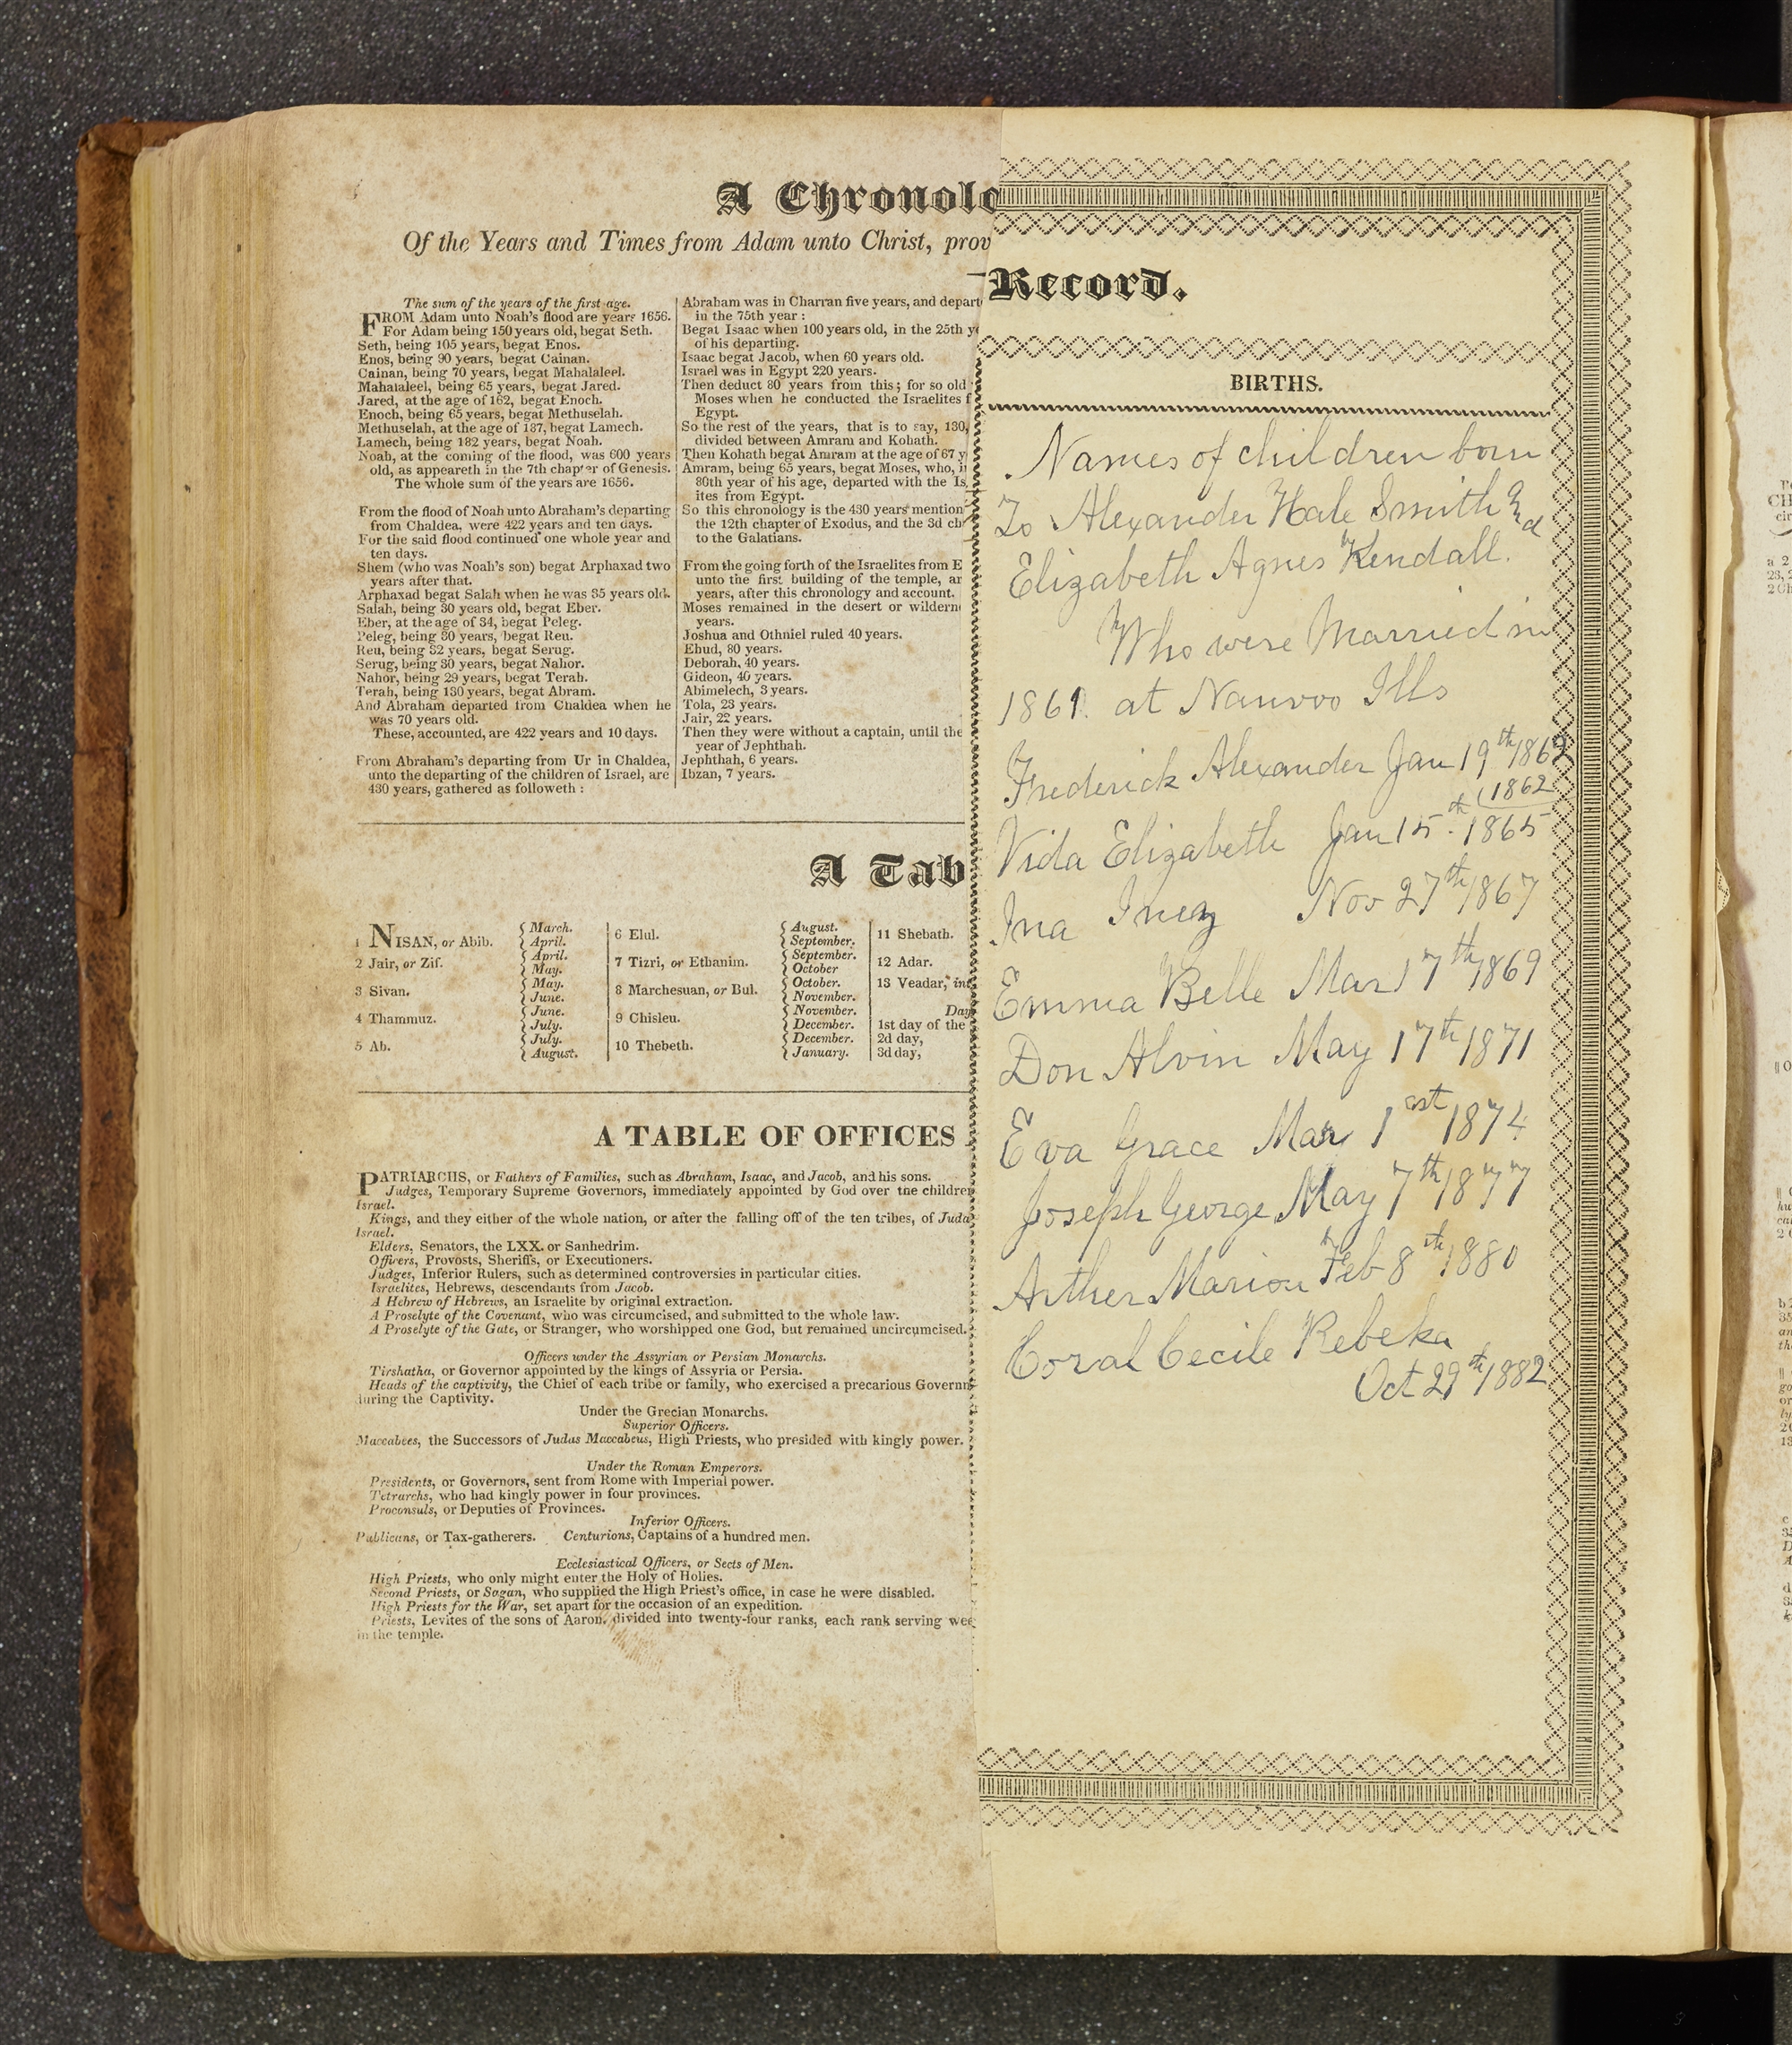 A Chronolo
Of the Years and Times from Adam unto Christ, prov
The sum of the years of the first age.
FROM Adam unto Noah's flood are years 1656.
For Adam being 150 years old, begat Seth.
Seth, being 105 years, begat Enos.
Enos, being 90 years, begat Cainan.
Cainan, being 70 years, begat Mahalaleel.
Mahalaleel, being 65 years, begat Jared.
Jared, at the age of 162, begat Enoch.
Enoch, being 65 years, begat Methuselah.
Methuselah, at the age of 187, begat Lamech.
Lamech, being 182 years, begat Noah.
Noah, at the coming of the flood, was 600 years
old, as appeareth in the 7th chapter of Genesis.
The whole sum of the years are 1656.
From the flood of Noah unto Abraham's departing
from Chaldea, were 422 years and ten days.
For the said flood continued one whole year and
ten days.
Shem (who was Noah's son) begat Arphaxad two
years after that.
Arphaxad begat Salah when he was 35 years old.
Salah, being 30 years old, begat Eber.
Eber, at the age of 34, begat Peleg.
Peleg, being 30 years, begat Reu.
Reu, being 32 years, begat Serug.
Serug, being 30 years, begat Nahor.
Nahor, being 29 years, begat Terah.
Terah, being 130 years, begat Abram.
And Abraham departed from Chaldea when he
was 70 years old.
These, accounted, are 422 years and 10 days.
From Abraham's departing from Ur in Chaldea,
unto the departing of the children of Israel, are
430 years, gathered as followeth :
Abraham was in Charran five years, and depart
in the 75th year :
Begat Isaac when 100 years old, in the 25th y
of his departing.
Isaac begat Jacob, when 60 years old.
Israel was in Egypt 220 years.
Then deduct 80 years from this ; for so old
Moses when he conducted the Israelites f
Egypt.
So the rest of the years, that is to say, 130,
divided between Amram and Kohath.
Then Kohath begat Amram at the age of 67 y
Amram, being 65 years, begat Moses, who, i
80th year of his age, departed with the Is
ites from Egypt.
So this chronology is the 430 years mention
the 12th chapter of Exodus, and the 3d ch
to the Galatians.
From the going forth of the Israelites from E
unto the first building of the temple, ar
years, after this chronology and account.
Moses remained in the desert or wildern
years.
Joshua and Othniel ruled 40 years.
Ehud, 80 years.
Deborah, 40 years.
Gideon, 40 years.
Abimelech, 3 years.
Tola, 23 years.
Jair, 22 years.
Then they were without a captain, until the
year of Jephthah.
Jephthah, 6 years.
Ibzan, 7 years.
A Tab
1 NISAN, or Abib. { March. April.
2 Jair, or Zif. { April. May.
3 Sivan. { May. June.
4 Thammuz. { June. July.
5 Ab. { July. August.
6 Elul. { August. September.
7 Tizri, or Ethanim. { September. October
8 Marchesuan, or Bul. { October. November.
9 Chisleu. { November. December.
10 Thebeth. { December. January.
11 Shebath.
12 Adar.
13 Veadar, int
Day
1st day of the
2d day,
3d day,
A TABLE OF OFFICES
PATRIARCHS, or Fathers of Families, such as Abraham, Isaac, and Jacob, and his sons.
Judges, Temporary Supreme Governors, immediately appointed by God over the children
Israel.
Kings, and they either of the whole nation, or after the falling off of the ten tribes, of Juda
Israel.
Elders, Senators, the LXX. or Sanhedrim.
Officers, Provosts, Sheriffs, or Executioners.
Judges, Inferior Rulers, such as determined controversies in particular cities.
Israelites, Hebrews, descendants from Jacob.
A Hebrew of Hebrews, an Israelite by original extraction.
A Proselyte of the Covenant, who was circumcised, and submitted to the whole law.
A Proselyte of the Gate, or Stranger, who worshipped one God, but remained uncircumcised.
Officers under the Assyrian or Persian Monarchs.
Tirshatha, or Governor appointed by the kings of Assyria or Persia.
Heads of the captivity, the Chief of each tribe or family, who exercised a precarious Governm
during the Captivity.
Under the Grecian Monarchs.
Superior Officers.
Maccabees, the Successors of Judas Maccabeus, High Priests, who presided with kingly power.
Under the Roman Emperors.
Presidents, or Governors, sent from Rome with Imperial power.
Tetrarchs, who had kingly power in four provinces.
Proconsuls, or Deputies of Provinces.
Inferior Officers.
Publicans, or Tax-gatherers. Centurions, Captains of a hundred men.
Ecclesiastical Officers, or Sects of Men.
High Priests, who only might enter the Holy of Holies.
Second Priests, or Sagan, who supplied the High Priest's office, in case he were disabled.
High Priests for the War, set apart for the occasion of an expedition.
Priests, Levites of the sons of Aaron, divided into twenty-four ranks, each rank serving wee
in the temple.
Record.
BIRTHS.
Names of children born
To Alexander Hale Smith And
Elizabeth Agnes Kendall.
Who were Married in
1861. at Nauvoo Ills
Frederick Alexander Jan 19th 1862
(1862
Vida Elizabeth Jan 15.th 1865
Ina Inez Nov 27th 1867
Emma Belle Mar 17th 1869
Don Alvin May 17th 1871
Eva Grace Mar 1est 1874
Joseph George May 7th 1877
Arther Marion Feb 8th 1880
Coral Cecile Rebeka
Oct 29th 1882